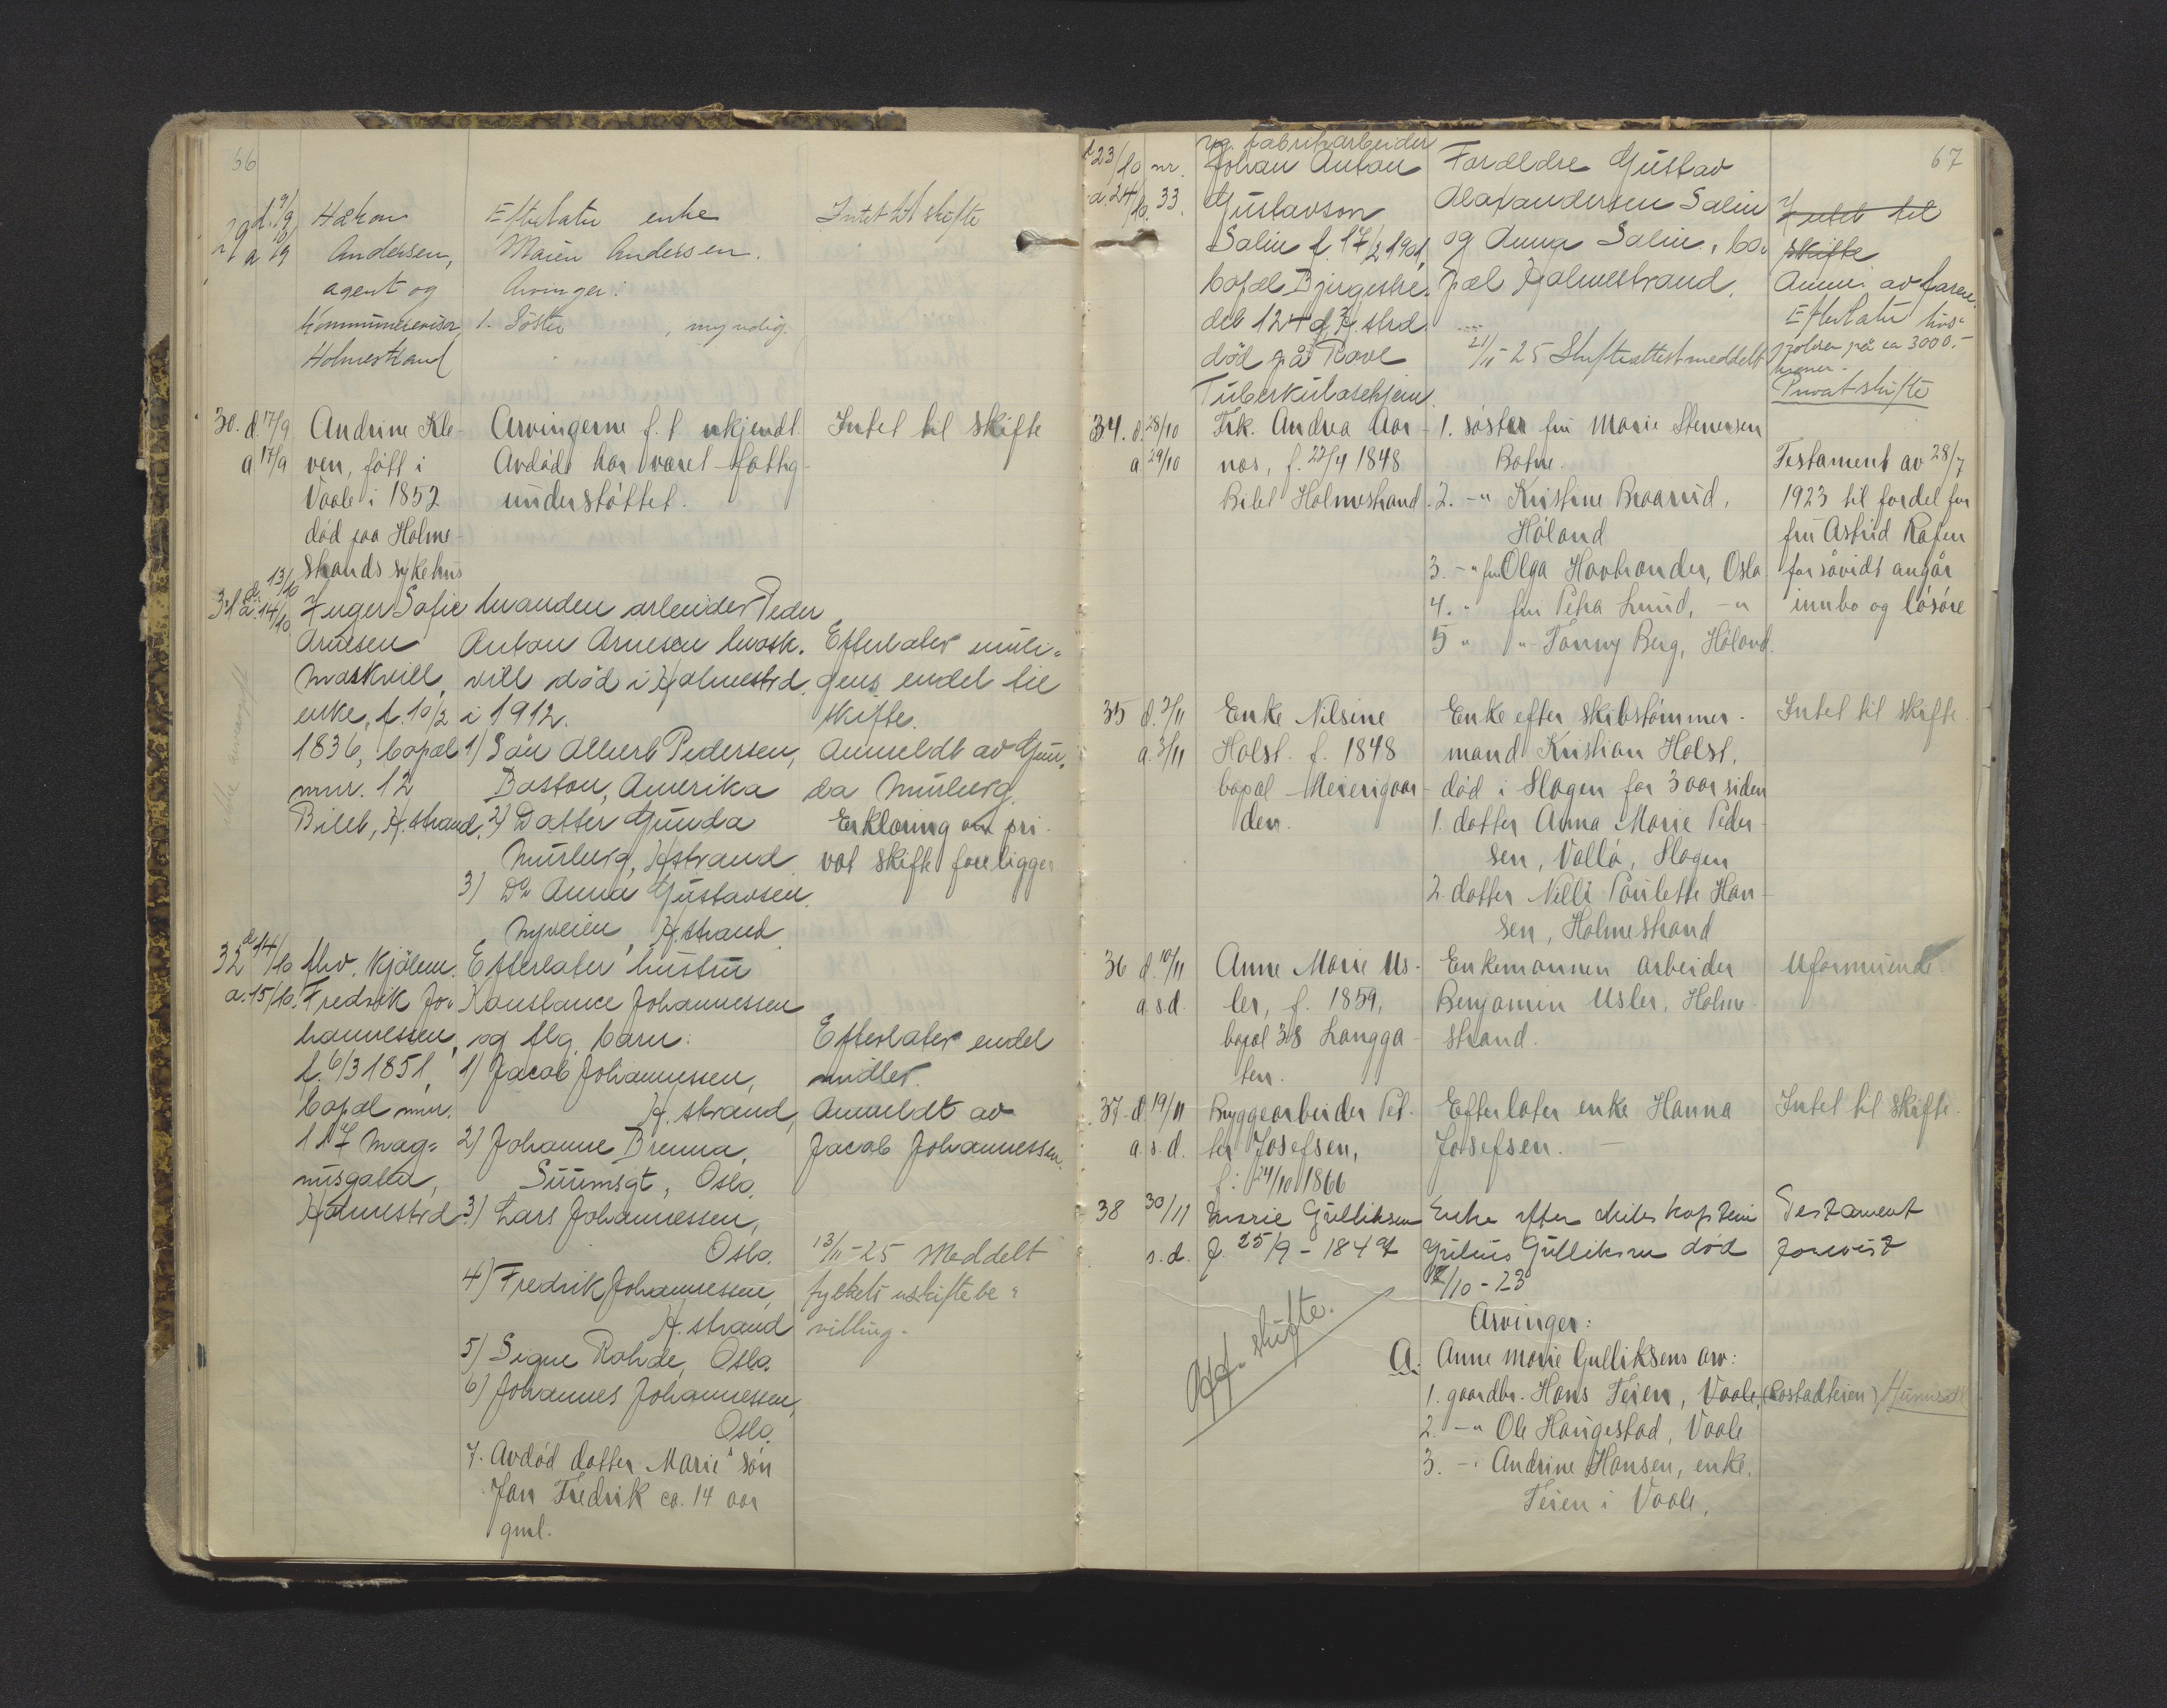 66
29 d. 9/9 Håkon Efterlater enke Intet til skifte
a 10/9 Andersen, Maren Andersen.
agent og Arvinger:
kommunerevisor, 1. Søster , myndig.
Holmestrand
30. d. 17/9 Andrine Kle- Arvingerne f. t ukjendt. Intet til skifte
a 17/9 ven, født i Avdøde har været fattig-
Vaale i 1852 understøttet.
død paa Holme-
strands sykehus
31 d. 13/10 Inger Sofie Manden arbeider Peder
a. 14/10 Arnesen Anton Arnesen Efterlater muli-
vill død i Holmestrd. gens endel til
enke, f. 10/2 i 1912. skifte.
1836, bopæl 1) Søn Albert Pedersen, Anmeldt av Gun-
mnr. 12 Boston, Amerika da Murberg.
Bilet, H.strand. 2) Datter Gunda Erklæring om pri-
Murberg, H.strand vat skifte foreligger
3) Do Anna Gustavsen,
Nyveien, H.strand.
32 d 14/10 fhv. kjølem. Efterlater hustru
a. 15/10. Fredrik Jo- Konstance Johannessen
hannessen, og flg. barn: Efterlater endel
f. 6/3 1851, 1) Jacob Johannessen, midler.
bopæl mnr. H. strand, Anmeldt av
117 Mag- 2) Johanne Brenna, Jacob Johannessen.
nusgata, Suumsgt, Oslo.
Holmestrd. 3) Lars Johannessen,
Oslo. 13/11-25 Meddelt
4) Fredrik Johannessen, fylkets uskiftebe-
H. strand villing.
5) Signe Rohde, Oslo.
6) Johannes Johannessen,
Oslo.
7. Avdød datter Marie's søn
Jan Fredrik ca. 14 aar
gml.
67
ug. fabrikarbeider
d 23/10 nr. Johan Anton Forældre Gustav
a. 24/10. 33. Gustavson Alaxandersen Salin Intet til
Salin f. 17/2 1901, og Anna Salin, bo- skifte
bopæl Bjergestræ- pæl Holmestrand. Anm. av faren.
det 124 d, H.strd. Efterlater hus-
død på Rove 21/11-25 Skifteattest meddelt på ca 3000.-
Tuberkulosehjem. kroner.
Privat skifte
34. d. 28/10 Frk. Andrea Aar- 1. søster fru Marie Stenersen
a 29/10 nos, f. 22/4 1848 Botne. Testament av 28/7
Bilet Holmestrand. 2. -" Kristine Braarud, 1923 til fordel for
Høland fru Astrid Rafen
3. -" fru Olga Havtrander, Oslo forsåvidt angår
4. " fru Petra Lund, -" innbo og løsøre
5 " " Fanny Berg, Høland.
35 d. 2/11 Enke Nilsine Enke efter skibstømmer- Intet til skifte.
a. 3/11 Holst. f. 1848 mand Kristian Holst,
bopæl Meierigaar- død i Slagen for 3 aar siden
den. 1. datter Anna Marie Peder-
sen, Vallø, Slagen
2. datter Nelli Paulette Han-
sen, Holmestrand
36 d. 10/11 Anne Marie Us- Enkemannen arbeider Uformuende.
a. s.d. ler, f. 1859, Benjamin Usler, Holme-
bopæl 38 Langga- strand.
ten.
37. d. 19/11 Bryggearbeider Pet- Efterlater enke Hanna Intet til skifte.
a. s. d. ter Josefsen, Josefsen. —
f: 24/10 1866
38 30/11 Marie Gulliksen Enke efter skibskaptein Testament
s. d. f. 25/9 - 1849 Julius Gulliksen død forevist
12/10 - 23
Off. skifte. Arvinger:
A. Anne Marie Gulliksens arv:
1. gaardbr. Hans Feien, Vaale, (Rostadteien)
2. -" Ole Haugestad, Vaale
3. -" Andrine Hansen, enke,
Feien i Vaale,